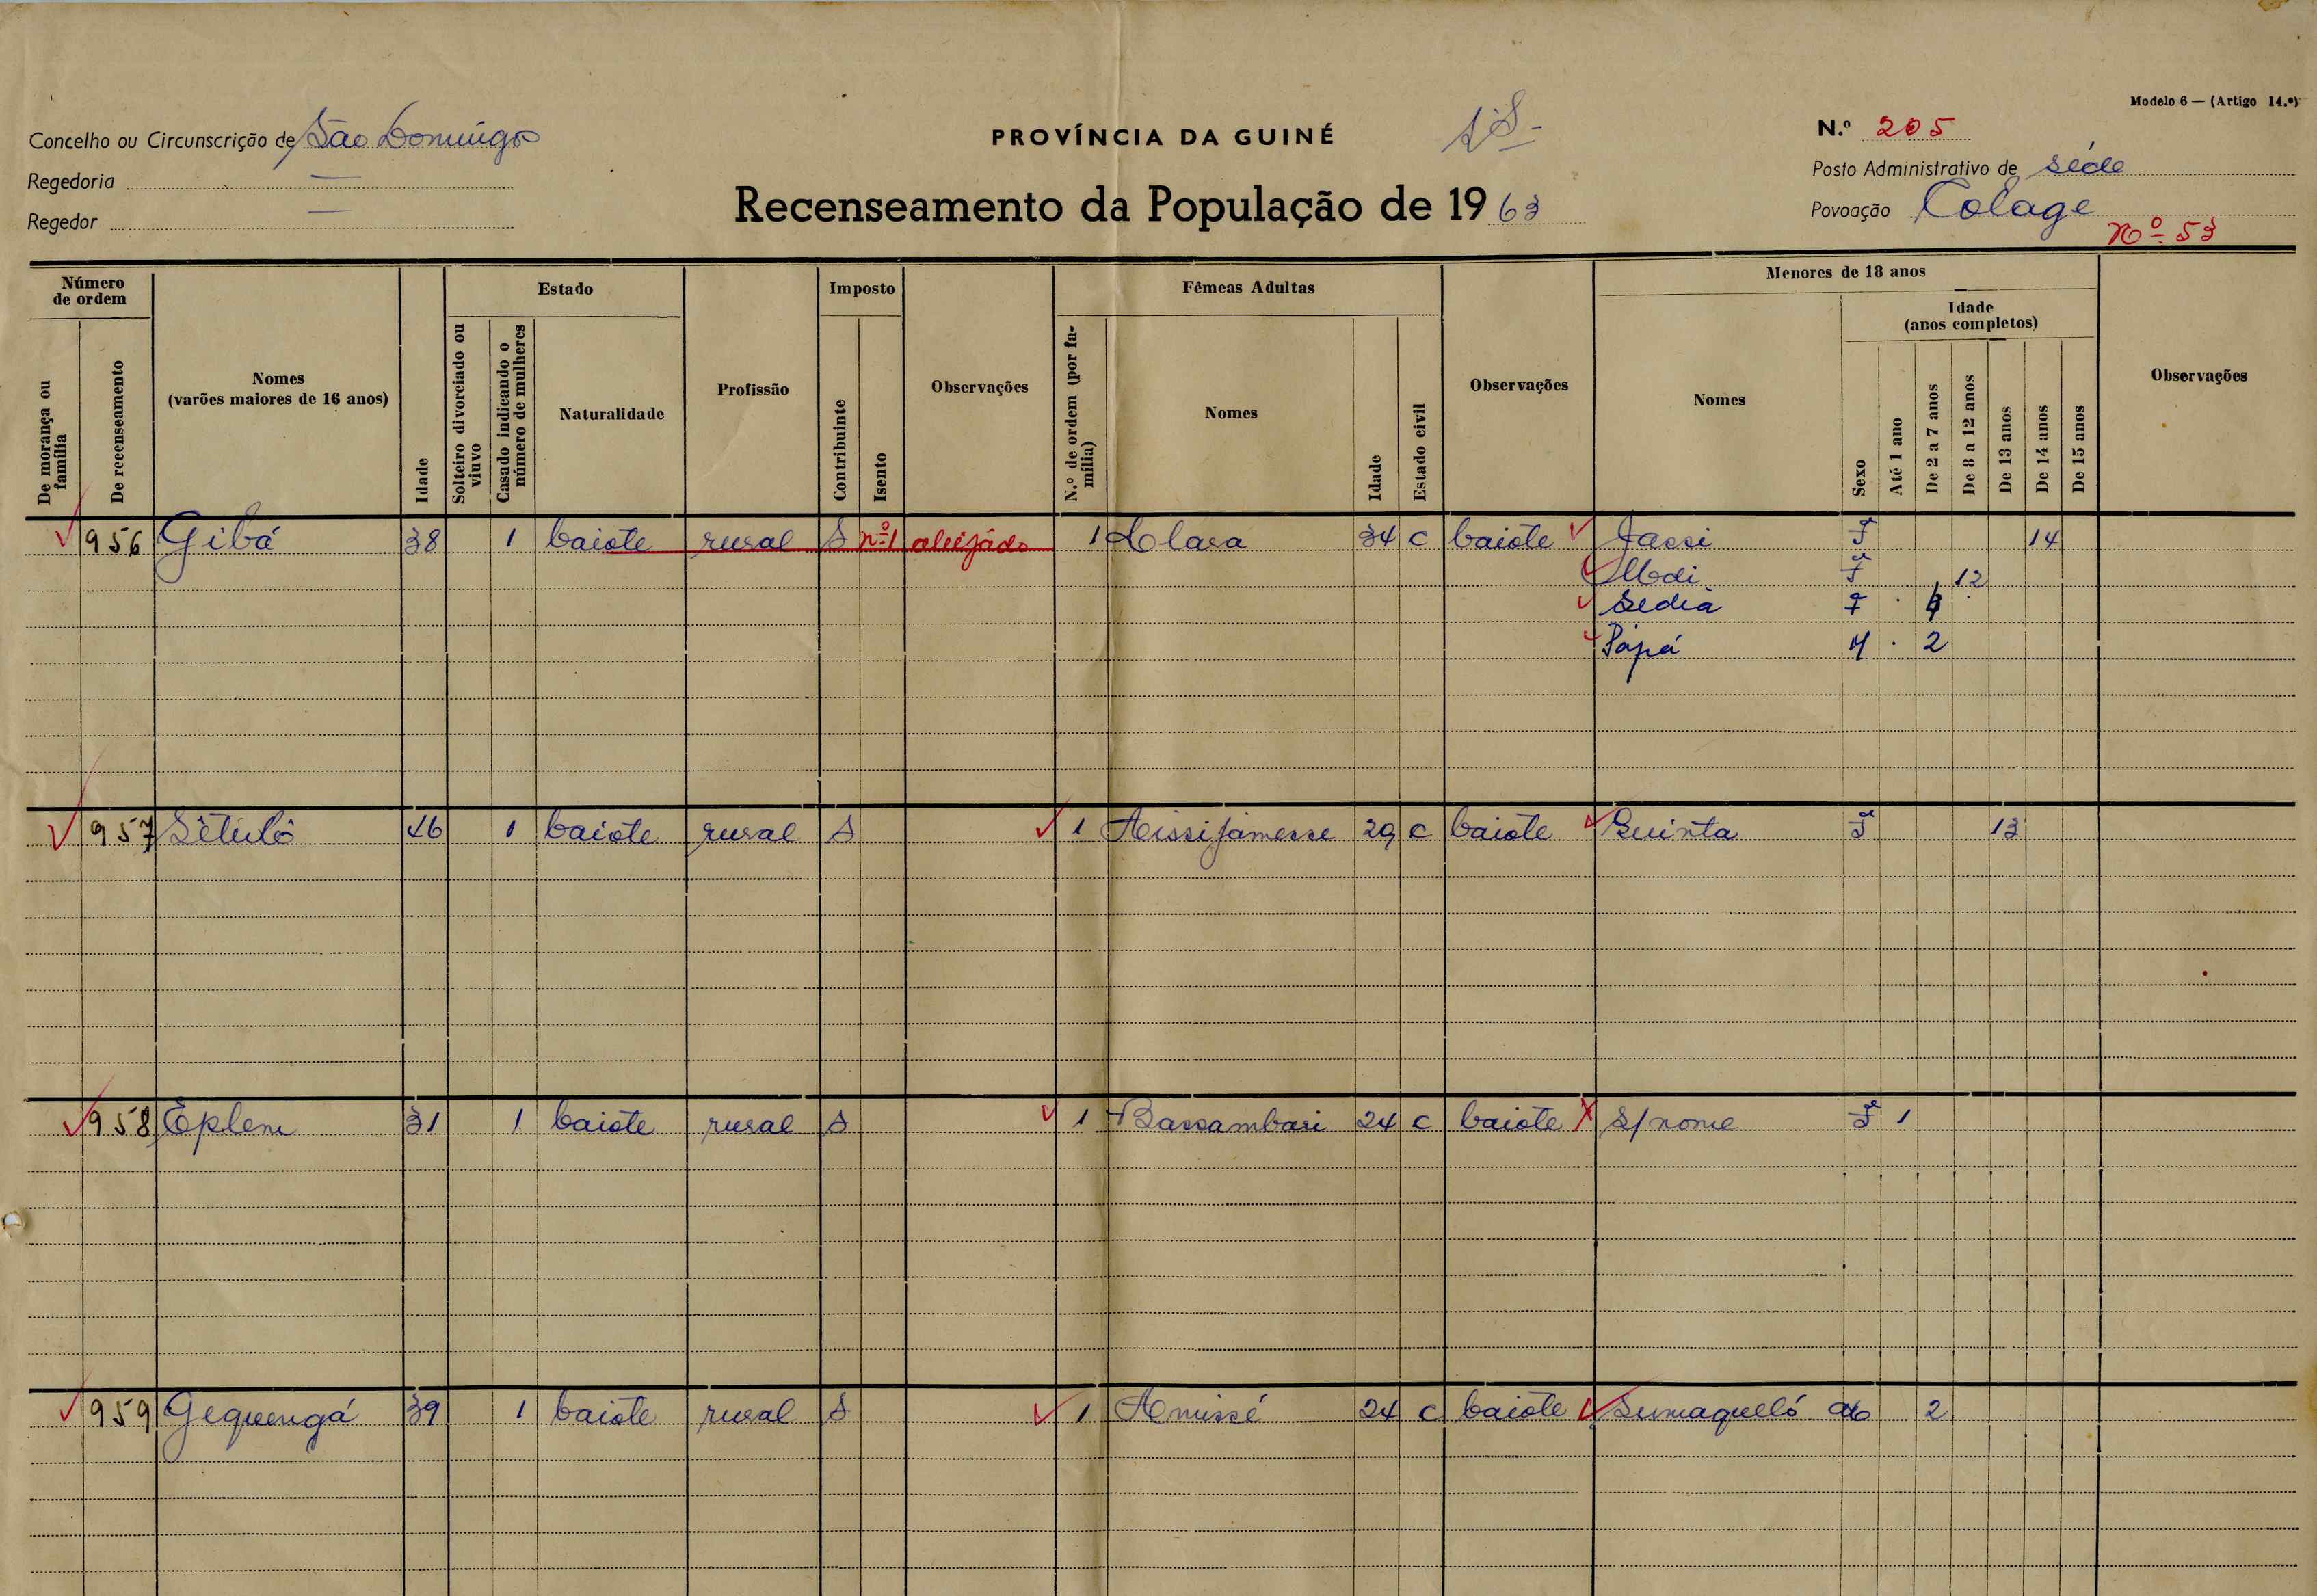 Modelo 6 — (Artigo 14.º)
Concelho ou Circunscrição de São Domingos
PROVÍNCIA DA GUINÉ
N.º 205
Regedoria —
Posto Administrativo de séde
Regedor —
Recenseamento da População de 1963
Povoação Colage
Nº 53
Número de ordem
De morança ou família
De recenseamento
Nomes (varões maiores de 16 anos)
Idade
Estado
Solteiro divorciado ou viuvo
Casado indicando o número de mulheres
Naturalidade
Profissão
Imposto
Contribuinte
Isento
Observações
Fêmeas Adultas
N.º de ordem (por família)
Nomes
Idade
Estado civil
Observações
Menores de 18 anos
Nomes
Sexo
Idade (anos completos)
Até 1 ano
De 2 a 7 anos
De 8 a 12 anos
De 13 anos
De 14 anos
De 15 anos
Observações
956 Gibá 38 1 baiote rural S nº 1 aleijádo 1 Clara 34 c baiote Jassi F 14
Modi F 12
Sediá F
Pápá M 2
957 Sêtulô 46 1 baiote rural S 1 Aissijámesse 29 c baiote Quinta F 13
958 Eplem 31 1 baiote rural S 1 Bassambari 24 c baiote s/nome F 1
959 Gequengá 39 1 baiote rural S 1 Amissé 24 c baiote Sumaquelló M 2